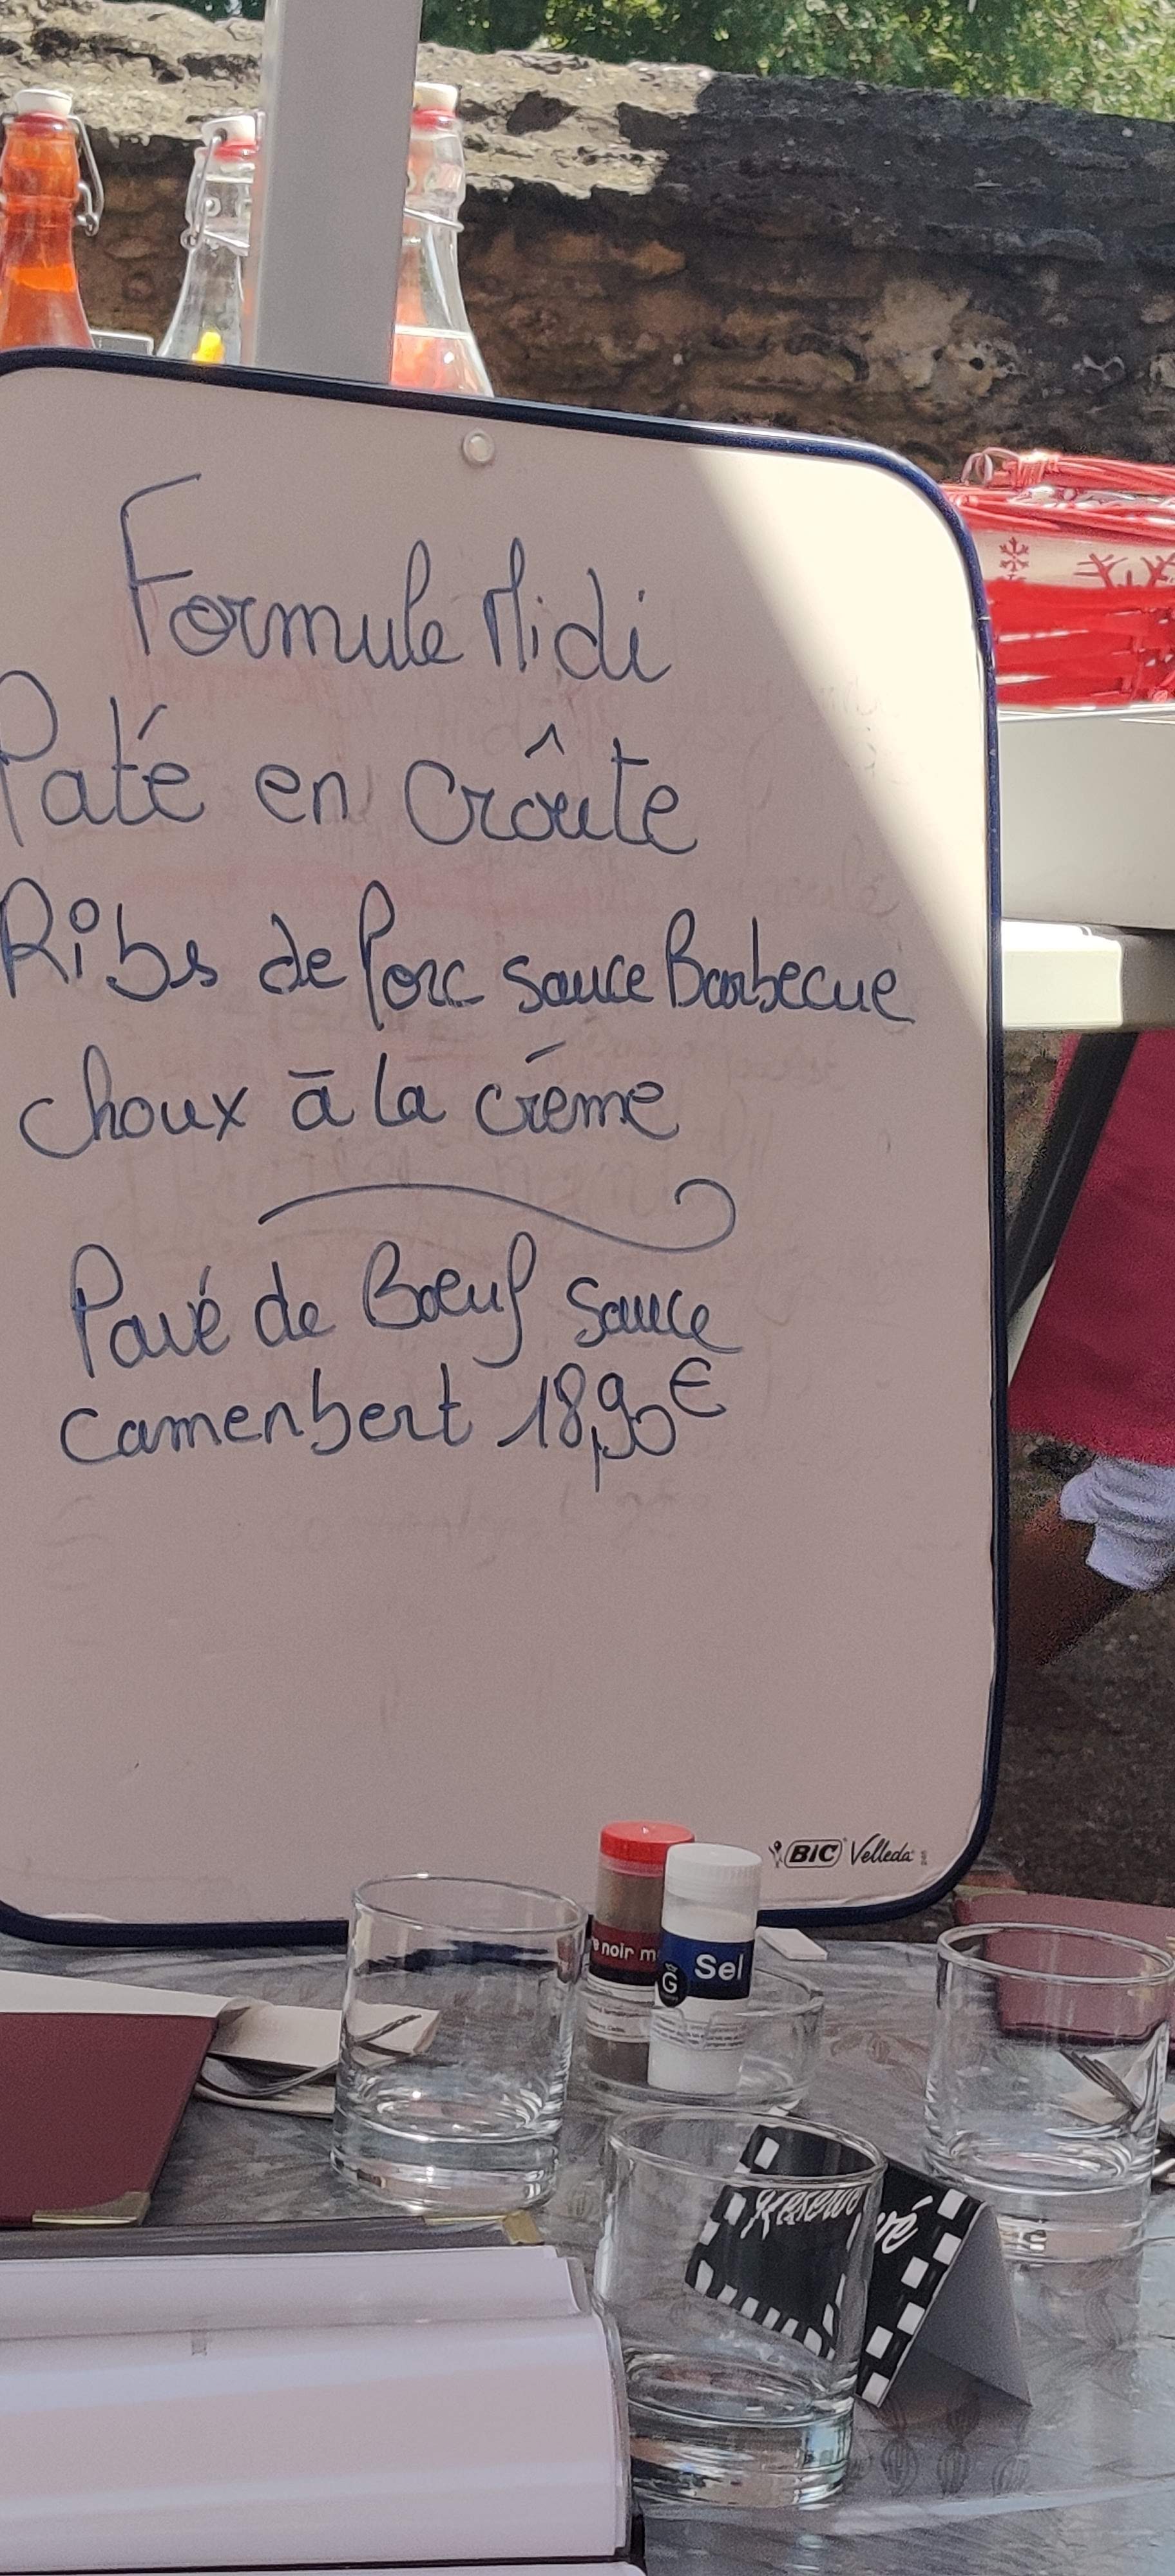 Formule Midi
Paté en Croûte
Ribs de Porc sauce Barbecue
choux à la créme
Pavé de Boeuf sauce
camenbert 18,90€
BIC Velleda
e noir m
G Sel
Réservé